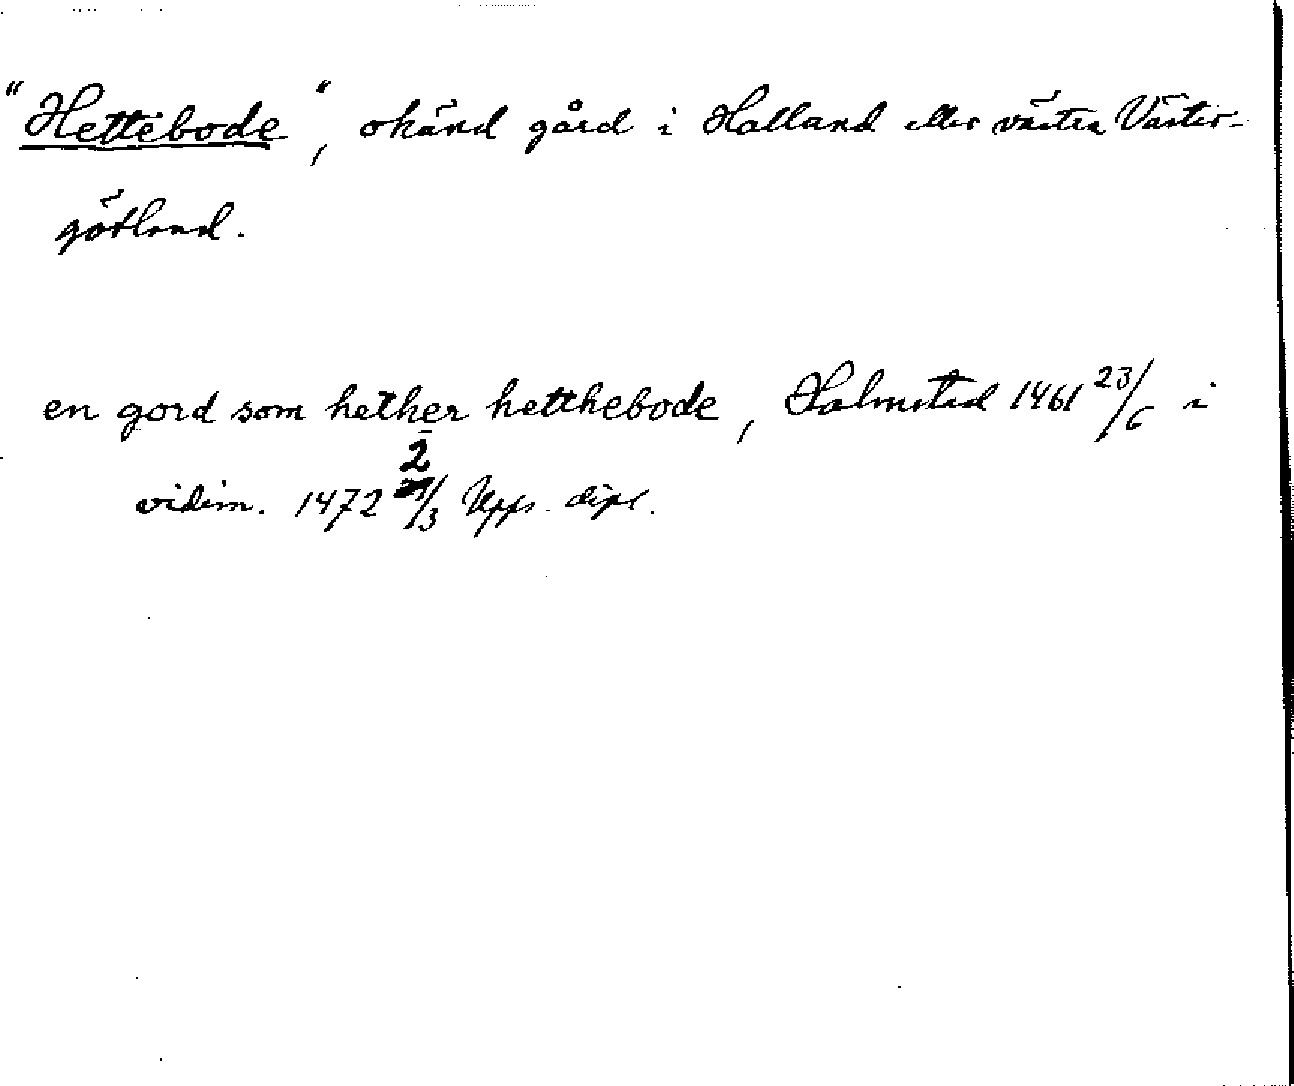 "Hettebode", okänd gård i Halland eller västra Väster-
götland.
en gord som hether hetthebode, Halmsted 1461 23/6 i
vidim. 1472 2/3 Upps. dipl.